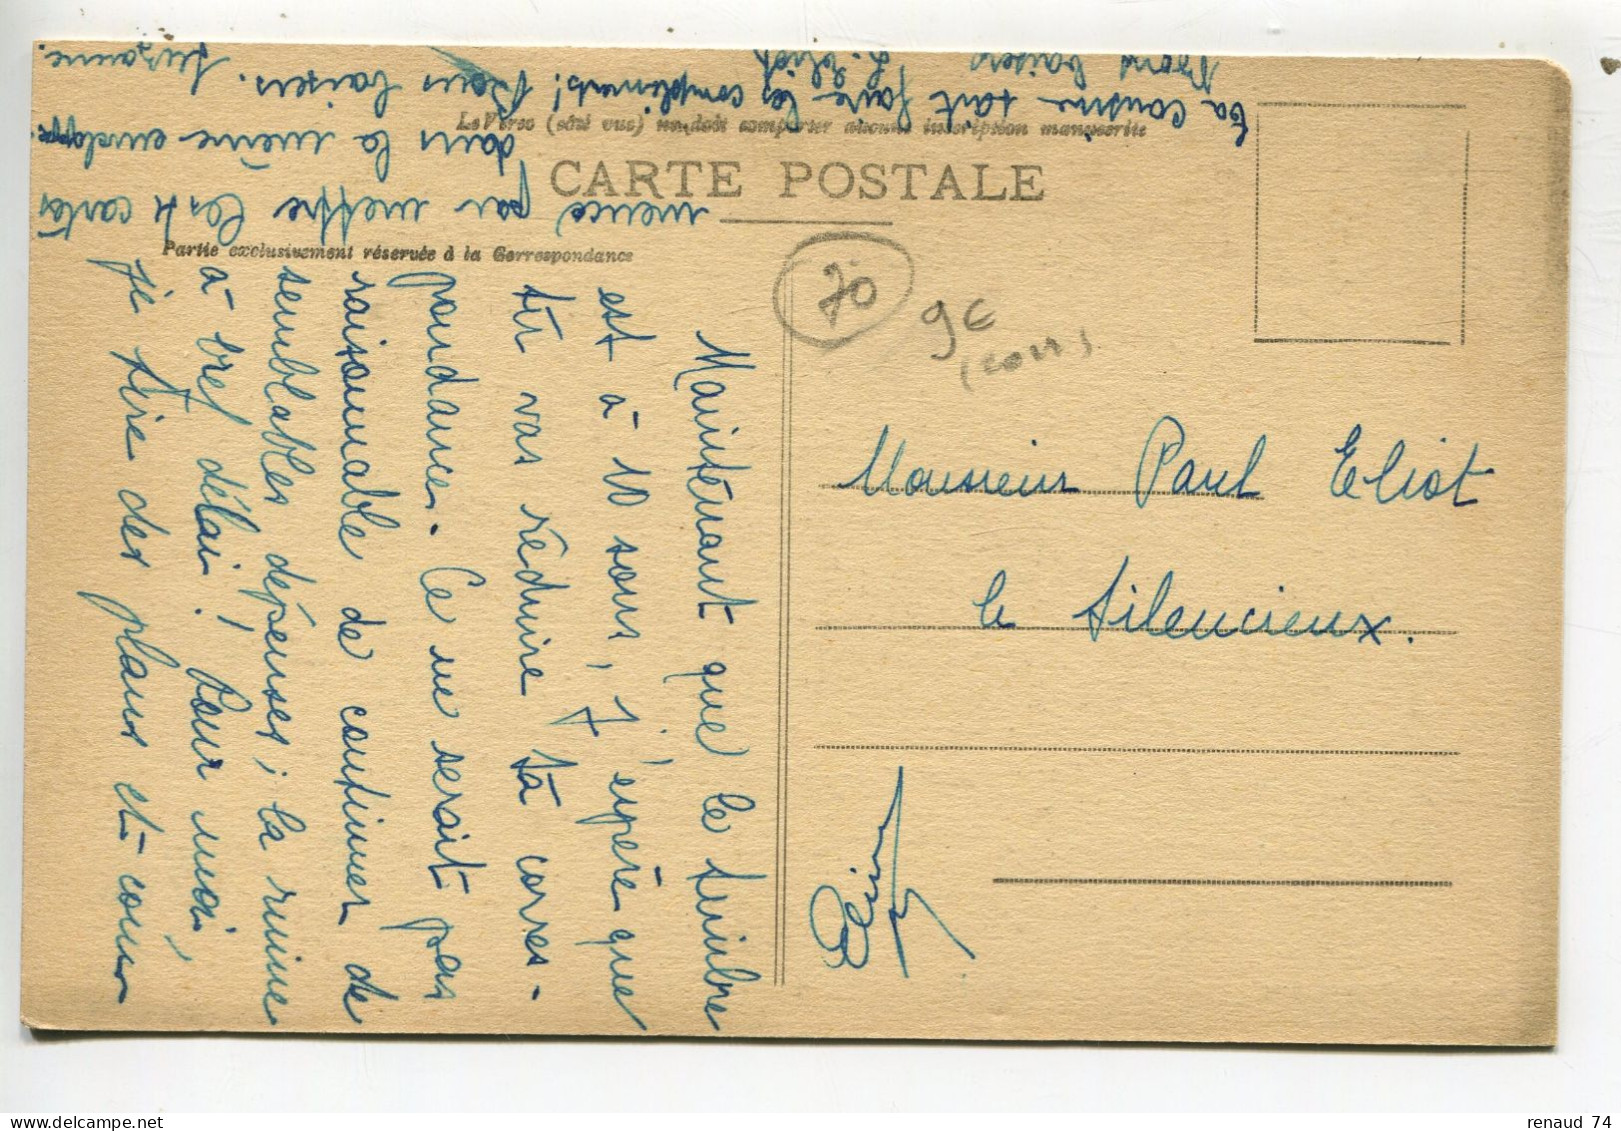 Le Verso (côté vue) ne doit comporter aucune inscription manuscrite
CARTE POSTALE
Partie exclusivement réservée à la Correspondance
70
9€
(corr)
Monsieur Paul Eliot
le silencieux.
Maintenant que le timbre
est à 10 sous, j'espère que
tu vas réduire ta corres-
pondance. Ce ne serait pas
raisonnable de continuer de
semblables dépenses ; la ruine
à bref délai ! Pour moi,
je tire des plans et com
mence par mettre les 4 cartes
dans la même enveloppe.
Bons baisers. Suzanne.
ta cousine tout faire les compliments !
Bons baisers
renaud 74